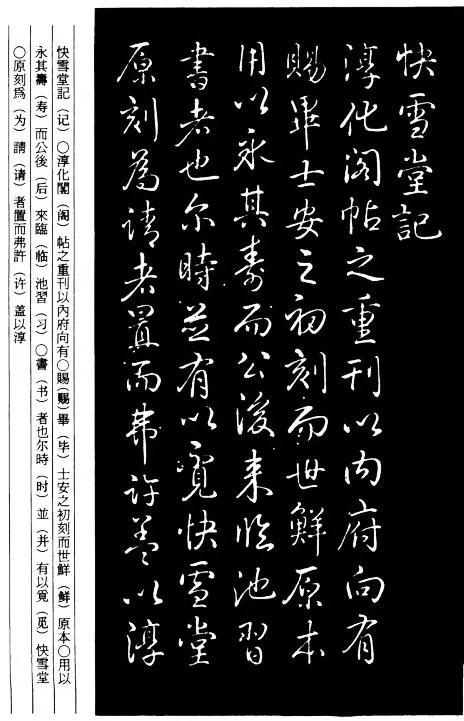 快雪堂記
淳化閣帖之重刊以内府向有
賜畢士安之初刻而世鮮原本
用以永其壽而公後来臨池習
書者也尔時並有以覓快雪堂
原刻為請者置而弗許盖以淳
快雪堂記（记）〇淳化閣（阁）帖之重刊以内府向有〇賜（赐）畢（毕）士安之初刻而世鮮（鲜）原本〇用以
永其壽（寿）而公後（后）來臨（临）池習（习）〇書（书）者也尔時（时）並（并）有以覓（觅）快雪堂
〇原刻爲（为）請（请）者置而弗許（许）盖以淳